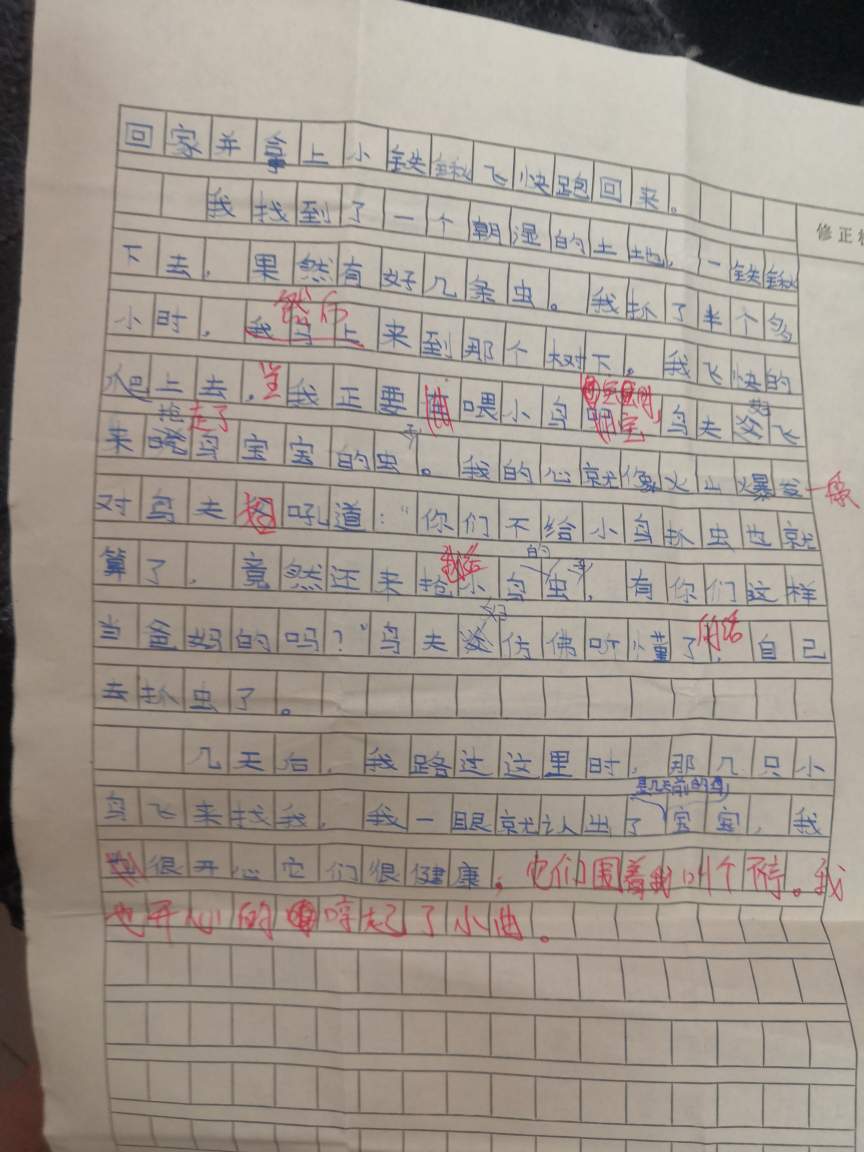 回家并拿上小铁锹飞快跑回来。
修正
我找到了一个朝湿的土地，一铁锹
下去，果然有好几条虫。我扒了半个多
小时，我马上来到那个树下。我飞快的
然后
爬上去，当我正要喂小鸟时，鸟夫妇飞
来抢走了鸟宝宝的虫子。我的心就像火山爆发一样
对鸟夫妇吼道：“你们不给小鸟扒虫也就
算了，竟然还来抢我给小鸟的虫子，有你们这样
当爸妈的吗？”鸟夫妇仿佛听懂了我的话，自己
去扒虫了。
几天后，我路过这里时，那几只小
鸟飞来找我，我一眼就认出了是几天前的鸟宝宝，我
很开心它们很健康，它们围着我叫个不停。我
也开心的哼起了小曲。